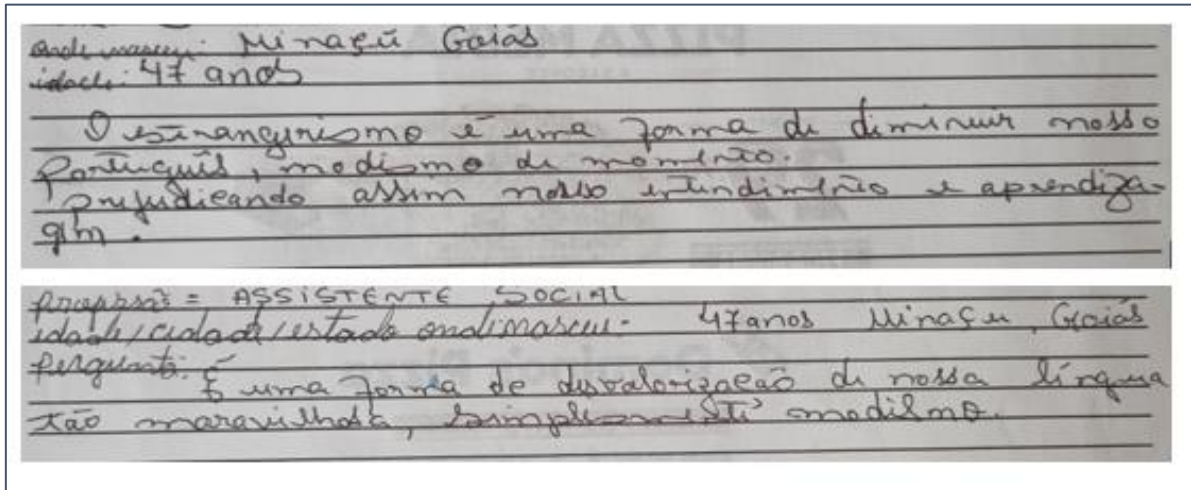 onde nasceu: Minaçú Goiás
idade: 47 anos
O estrangeirismo é uma forma de diminuir nosso
Português, modismo de momento.
prejudicando assim nosso entendimento e aprendiza-
gem.
profissão = ASSISTENTE SOCIAL
idade/cidade/estado onde nasceu - 47 anos Minaçu, Goiás
pergunta:
É uma forma de desvalorização de nossa língua
tão maravilhosa, simplesmente modismo.